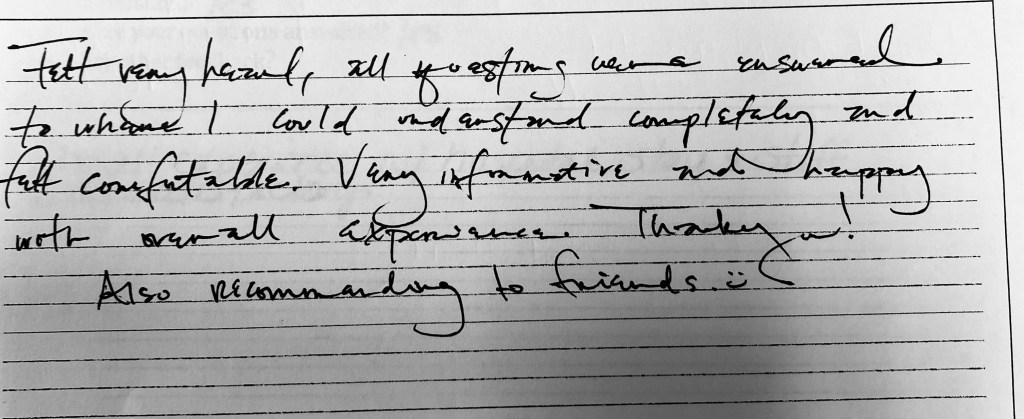 Felt very heard, all questions were answered.
to where I could understand completely and
felt comfortable. Very informative and happy
with overall experience. Thank you!
Also recommending to friends. :)